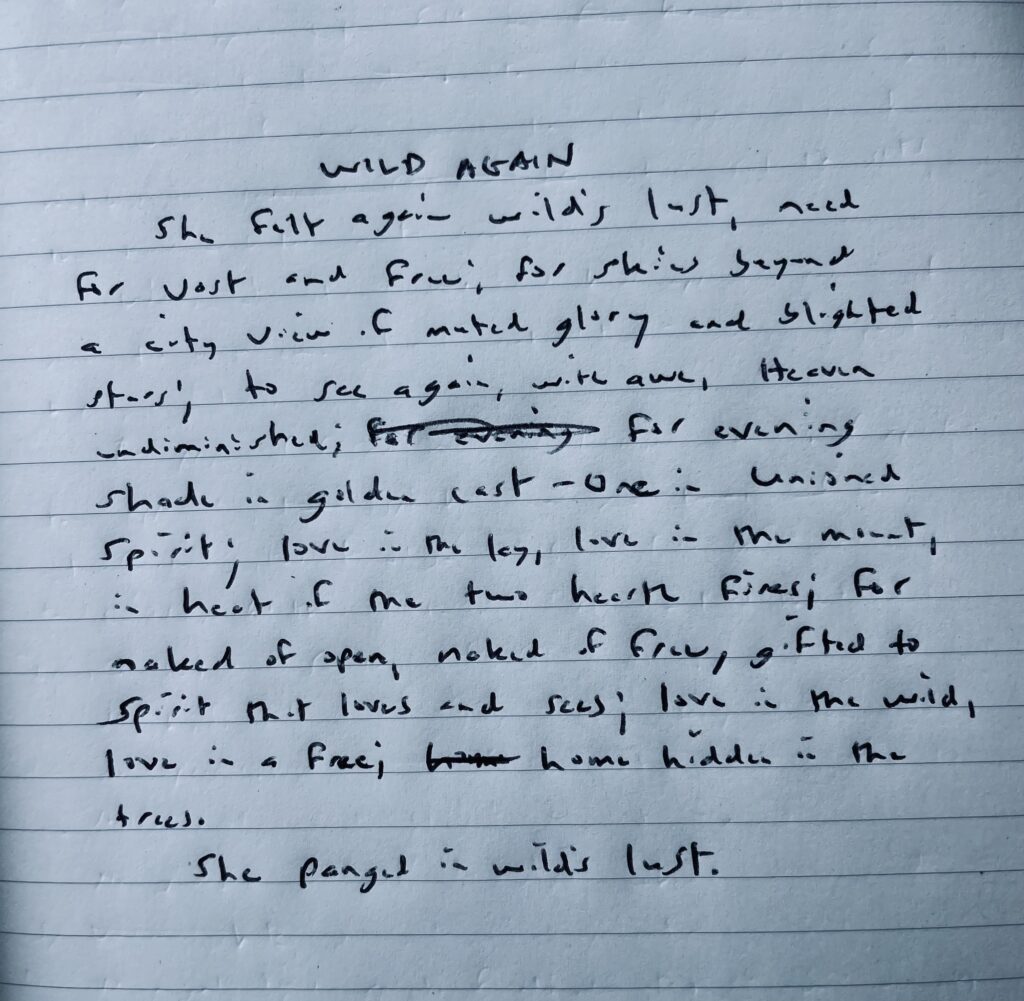 WILD AGAIN
She felt again wild's lust, need
for vast and free; for skies beyond
a city view of muted glory and blighted
stars; to see again, with awe, Heaven
undiminished; for evening for evening
shade in golden cast - One in Unisoned
spirit; love in the ley, love in the mount,
in heat of the two hearth fires; for
naked of open, naked of free, gifted to
spirit that loves and sees; love in the wild,
love in a free; home home hidden in the
trees.
She panged in wild's lust.